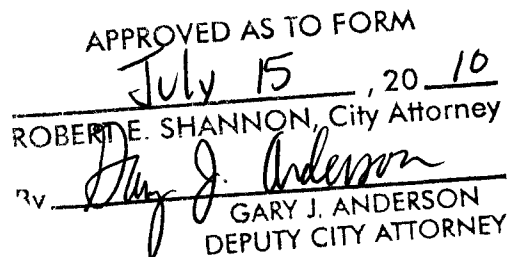 APPROVED AS TO FORM
July 15, 20 10
ROBERT E. SHANNON, City Attorney
By Gary J. Anderson
GARY J. ANDERSON
DEPUTY CITY ATTORNEY